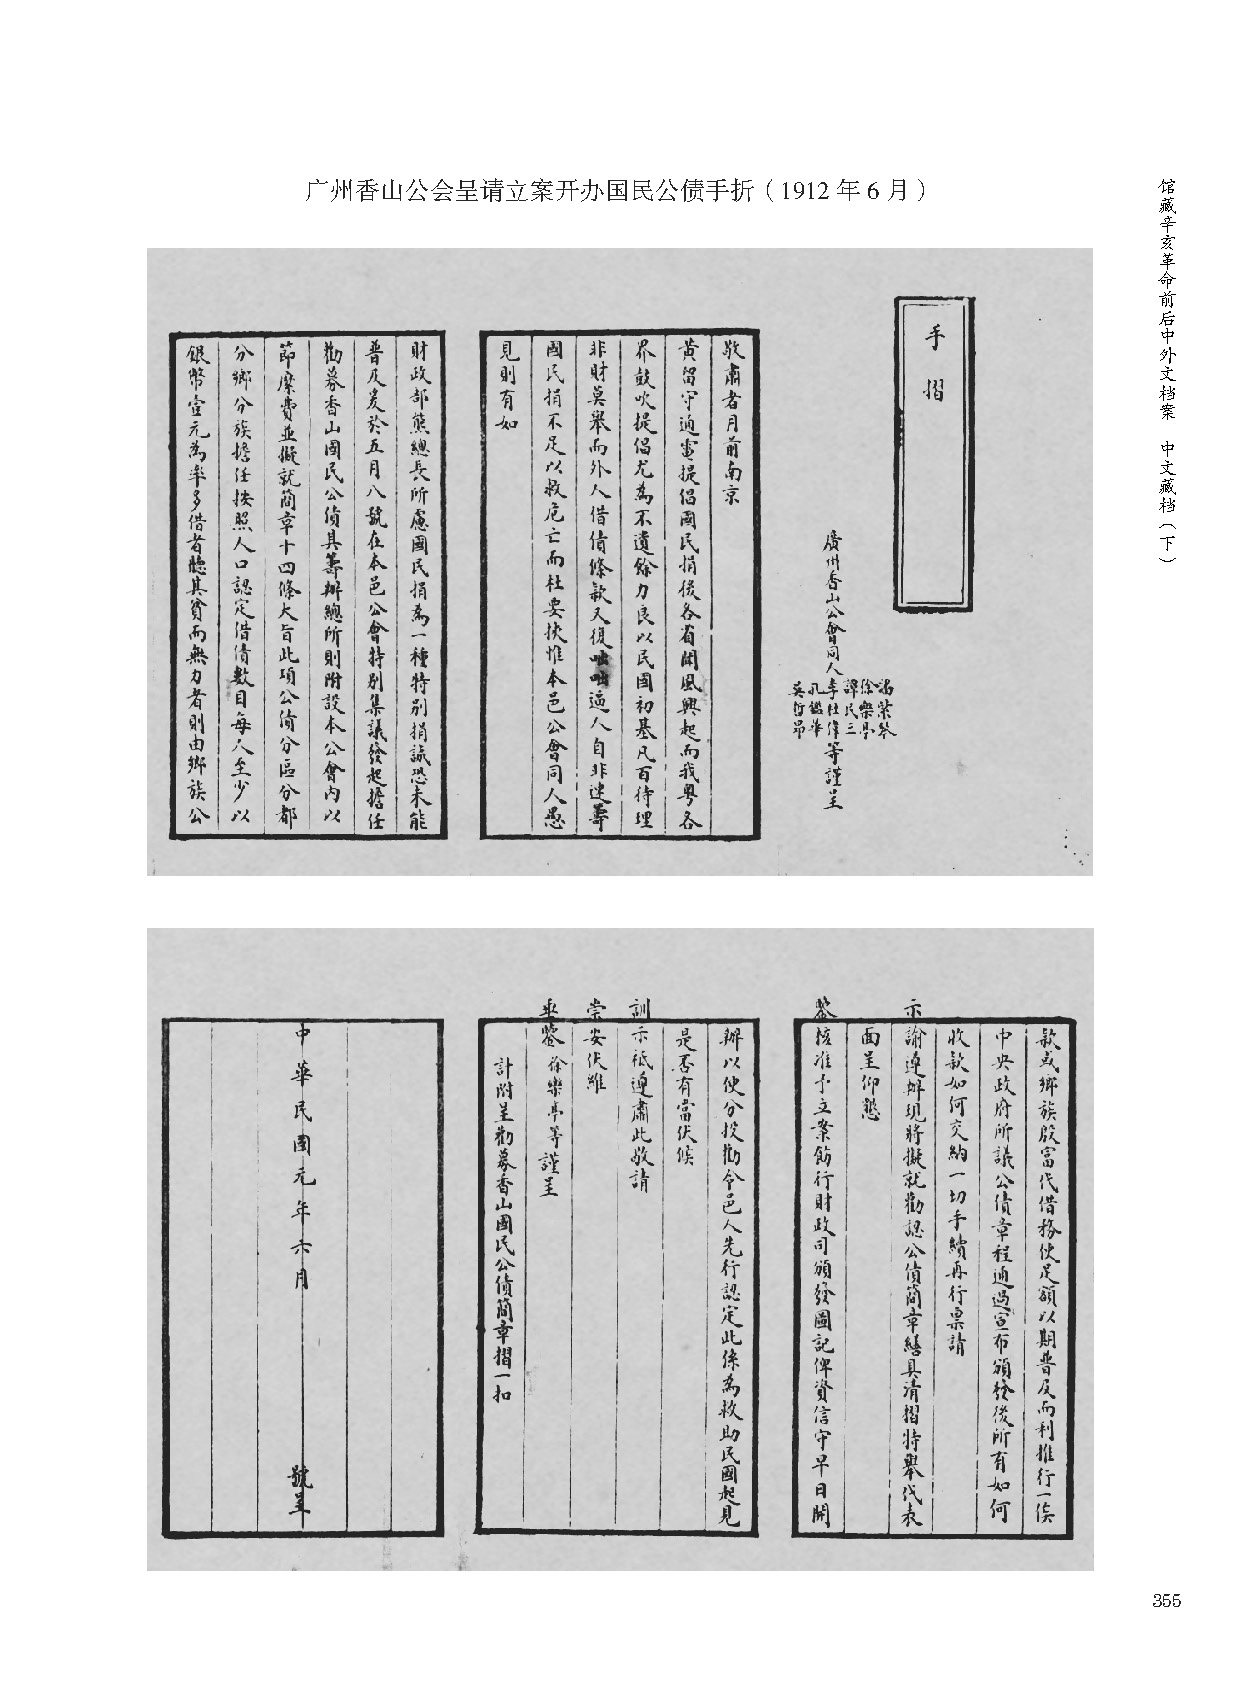 广州香山公会呈请立案开办国民公债手折（1912 年 6 月）
馆藏辛亥革命前后中外文档案 中文藏档（下）
手摺
廣州香山公會同人
徐樂亭
譚民三
李杜偉等謹呈
孔鑑華
吳哲昂
敬肅者月前南京
黃留守通電提倡國民捐後各省聞風興起而我粵各
界鼓吹提倡尤為不遺餘力良以民國初基凡百待理
非財莫舉而外人借債條欵又復咄咄逼人自非速籌
國民捐不足以救危亡而杜要挾惟本邑公會同人愚
見則有如
財政部熊總長所慮國民捐為一種特別捐誠恐未能
普及爰於五月八號在本邑公會特別集議發起擔任
勸募香山國民公債其籌辦總所則附設本公會內以
節糜費並擬就簡章十四條大旨此項公債分區分都
分鄉分族擔任按照人口認定借債數目每人至少以
銀幣壹元為率多借者聽其貧而無力者則由鄉族公
欵或鄉族殷富代借務使足額以期普及而利推行一俟
中央政府所議公債章程通過宣布頒發後所有如何
收欵如何交納一切手續再行稟請
示諭遵辦現將擬就勸認公債簡章繕具清摺特舉代表
面呈仰懇
鑒核准予立案飭行財政司頒發圖記俾資信守早日開
辦以便分投勸令邑人先行認定此係為救助民國起見
是否有當伏候
訓示祗遵肅此敬請
崇安伏維
垂鑒 徐樂亭等謹呈
計附呈勸募香山國民公債簡章摺一扣
中華民國元年六月 號呈
355